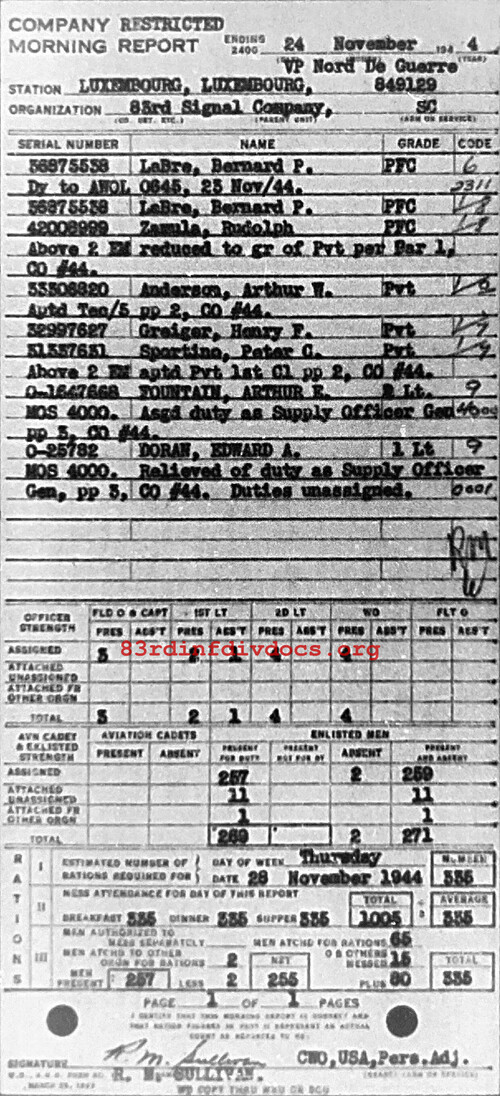 COMPANY RESTRICTED
MORNING REPORT ENDING 2400 24 November 194 4
VP Nord De Guerre
STATION LUXEMBOURG, LUXEMBOURG, 849129
ORGANIZATION 83rd Signal Company, SC
(CO. DET. ETC.) (PARENT UNIT) (ARM OR SERVICE)
SERIAL NUMBER NAME GRADE CODE
36875538 LaBre, Bernard P. PFC 6
Dy to AWOL 0645, 23 Nov/44. 2311
36875538 LaBre, Bernard P. PFC
42008999 Zamula, Rudolph PFC
Above 2 EM reduced to gr of Pvt per Par 1,
CO #44.
33506820 Anderson, Arthur W. Pvt
Aptd Tec/5 pp 2, CO #44.
32997627 Greiger, Henry F. Pvt
31337631 Sportino, Peter C. Pvt
Above 2 EM aptd Pvt 1st Cl pp 2, CO #44.
O-1647668 FOUNTAIN, ARTHUR E. 2 Lt. 9
MOS 4000. Asgd duty as Supply Officer Gen 4000
pp 3, CO #44.
O-25782 DORAN, EDWARD A. 1 Lt 9
MOS 4000. Relieved of duty as Supply Officer
Gen, pp 3, CO #44. Duties unassigned. 0001
OFFICER STRENGTH FLD O & CAPT 1ST LT 2D LT WO FLT O
PRES ABS'T PRES ABS'T PRES ABS'T PRES ABS'T PRES ABS'T
83rdinfdivdocs.org
ASSIGNED 3 2 1 4 4
ATTACHED UNASSIGNED
ATTACHED FR OTHER ORGN
TOTAL 3 2 1 4 4
AVN CADET & ENLISTED STRENGTH AVIATION CADETS ENLISTED MEN
PRESENT ABSENT PRESENT FOR DUTY PRESENT NOT FOR DY ABSENT PRESENT AND ABSENT
ASSIGNED 257 2 259
ATTACHED UNASSIGNED 11 11
ATTACHED FR OTHER ORGN 1 1
TOTAL 269 2 271
RATIONS
I ESTIMATED NUMBER OF RATIONS REQUIRED FOR DAY OF WEEK Thursday NUMBER
DATE 28 November 1944 335
II MESS ATTENDANCE FOR DAY OF THIS REPORT TOTAL AVERAGE
BREAKFAST 335 DINNER 335 SUPPER 335 1005 ÷ 3 335
III MEN AUTHORIZED TO MESS SEPARATELY MEN ATCHD FOR RATIONS 65
MEN ATCHD TO OTHER ORGN FOR RATIONS 2 NET O & OTHERS MESSED 15 TOTAL
MEN PRESENT 257 LESS 2 255 PLUS 80 335
PAGE 1 OF 1 PAGES
I CERTIFY THAT THIS MORNING REPORT IS CORRECT AND
SIGNATURE R. M. Sullivan CWO, USA, Pers. Adj.
R. M. SULLIVAN.